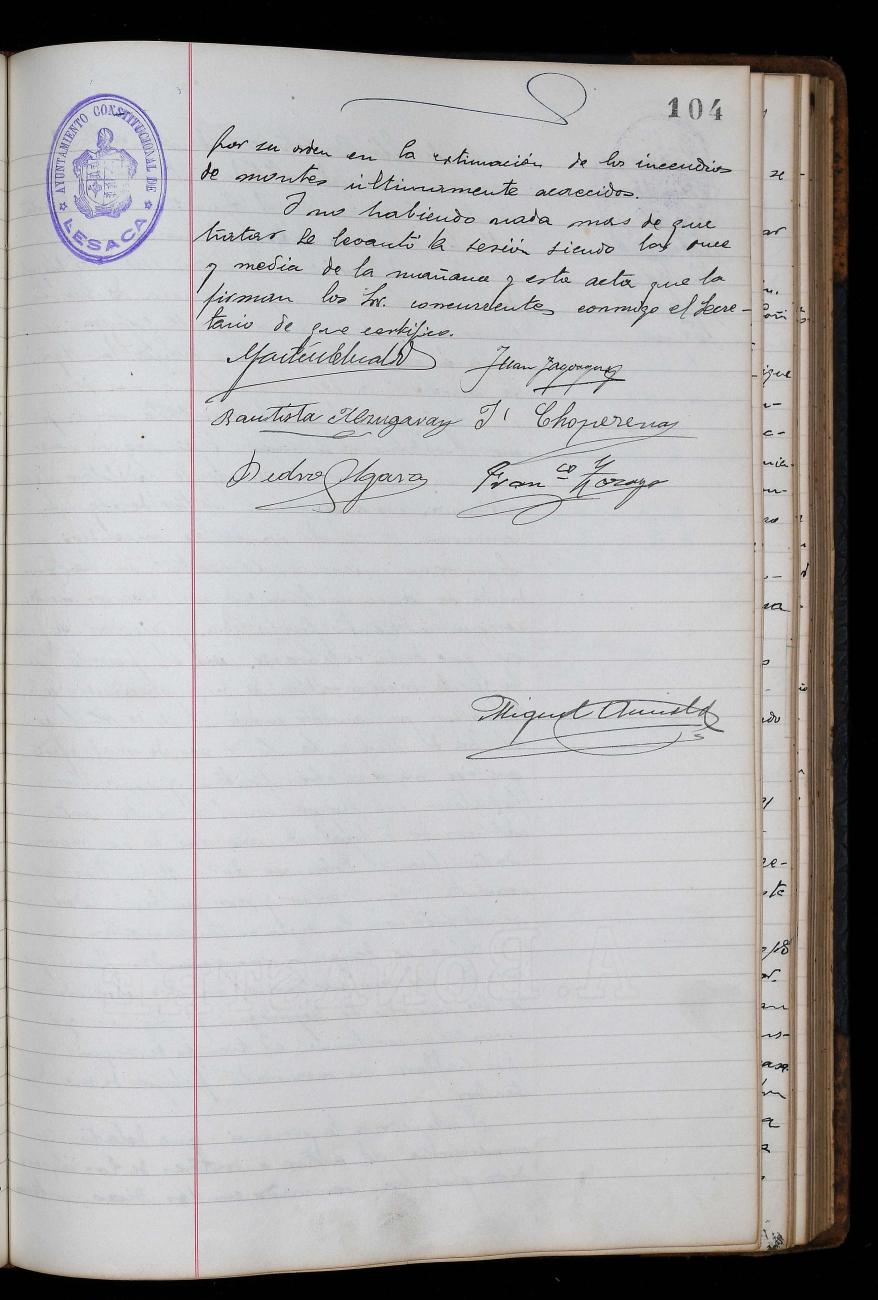 104
AYUNTAMIENTO CONSTITUCIONAL DE
LESACA
por su orden en la estimación de los incendios
de montes ultimamente acaecidos.
Y no habiendo nada mas de que
tratar se levantó la sesión siendo las once
y media de la mañana y esta acta que la
firman los Sr. concurrentes conmigo el Secre-
tario de que certifico.
Juan
Bautista
J Choperena
Pedro Ygara
Franco
Miguel
A. BONASTRE